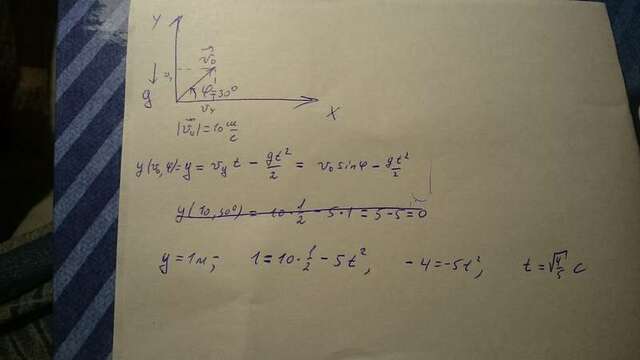 Y
v⃗₀
vᵧ
φ=30°
g
vₓ
X
|v⃗₀| = 10 м/с
y(v₀,φ) = y = vᵧt − gt²/2 = v₀sinφ − gt²/2
y(10,30°) = 10·1/2 − 5·1 = 5−5=0
y = 1м; 1 = 10·1/2 − 5t², −4 = −5t²; t = √4/5 с